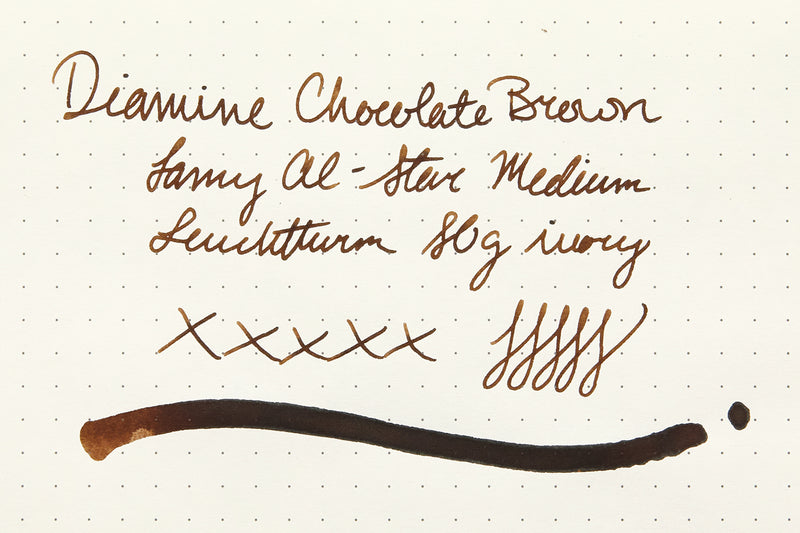 Diamine Chocolate Brown
Lamy Al-Star Medium
Leuchtturm 80g ivory
xxxxx